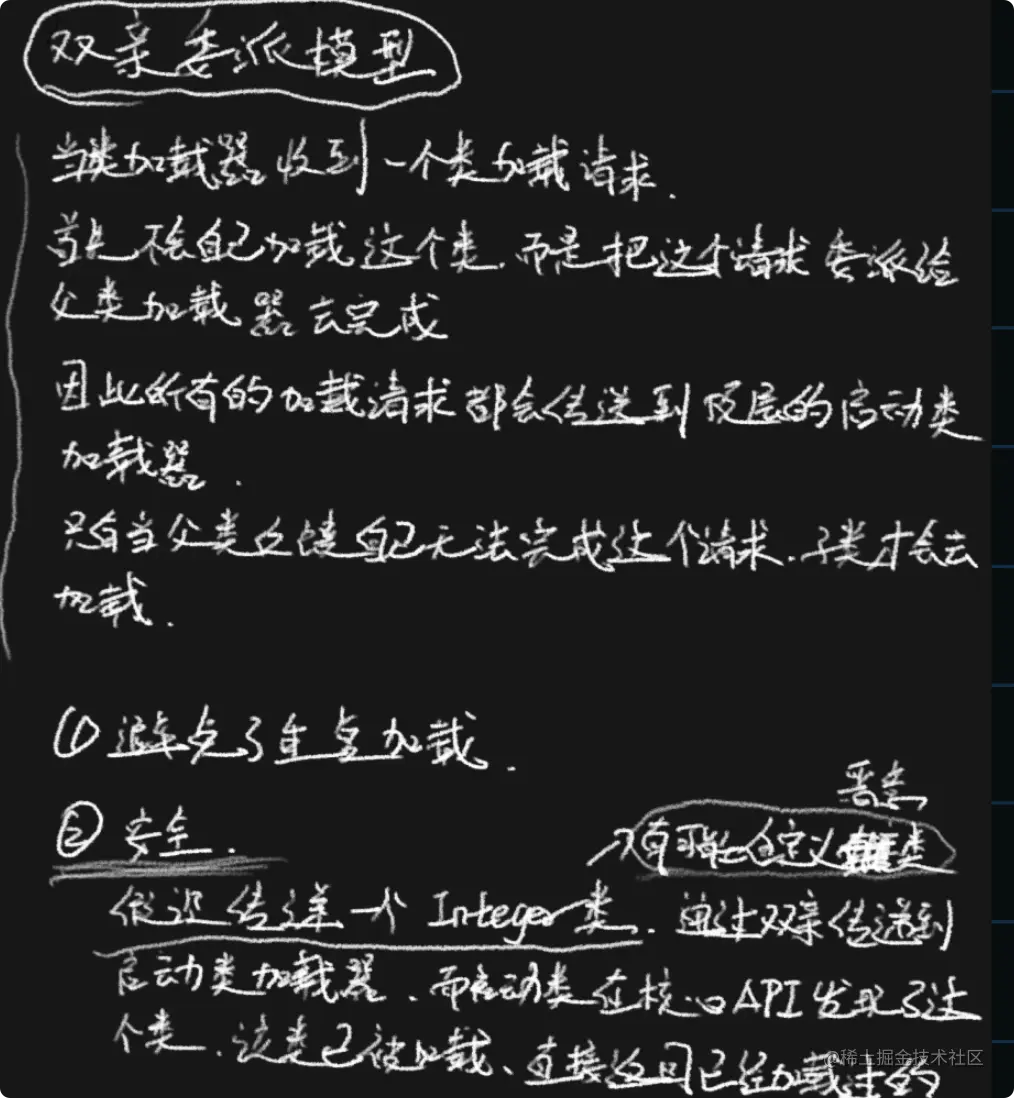 双亲委派模型
当类加载器收到一个类加载请求.
首先不会自己加载这个类.而是把这个请求委派给
父类加载器去完成
因此所有的加载请求都会传送到顶层的启动类
加载器.
只有当父类反馈自己无法完成这个请求.子类才会去
加载.
① 避免了重复加载.
恶意
② 安全.
→有可能是自定义类
假设传递一个 Integer类.通过双亲传送到
启动类加载器.而启动类在核心API发现了这
个类.该类已被加载、直接返回已经加载过的
@稀土掘金技术社区